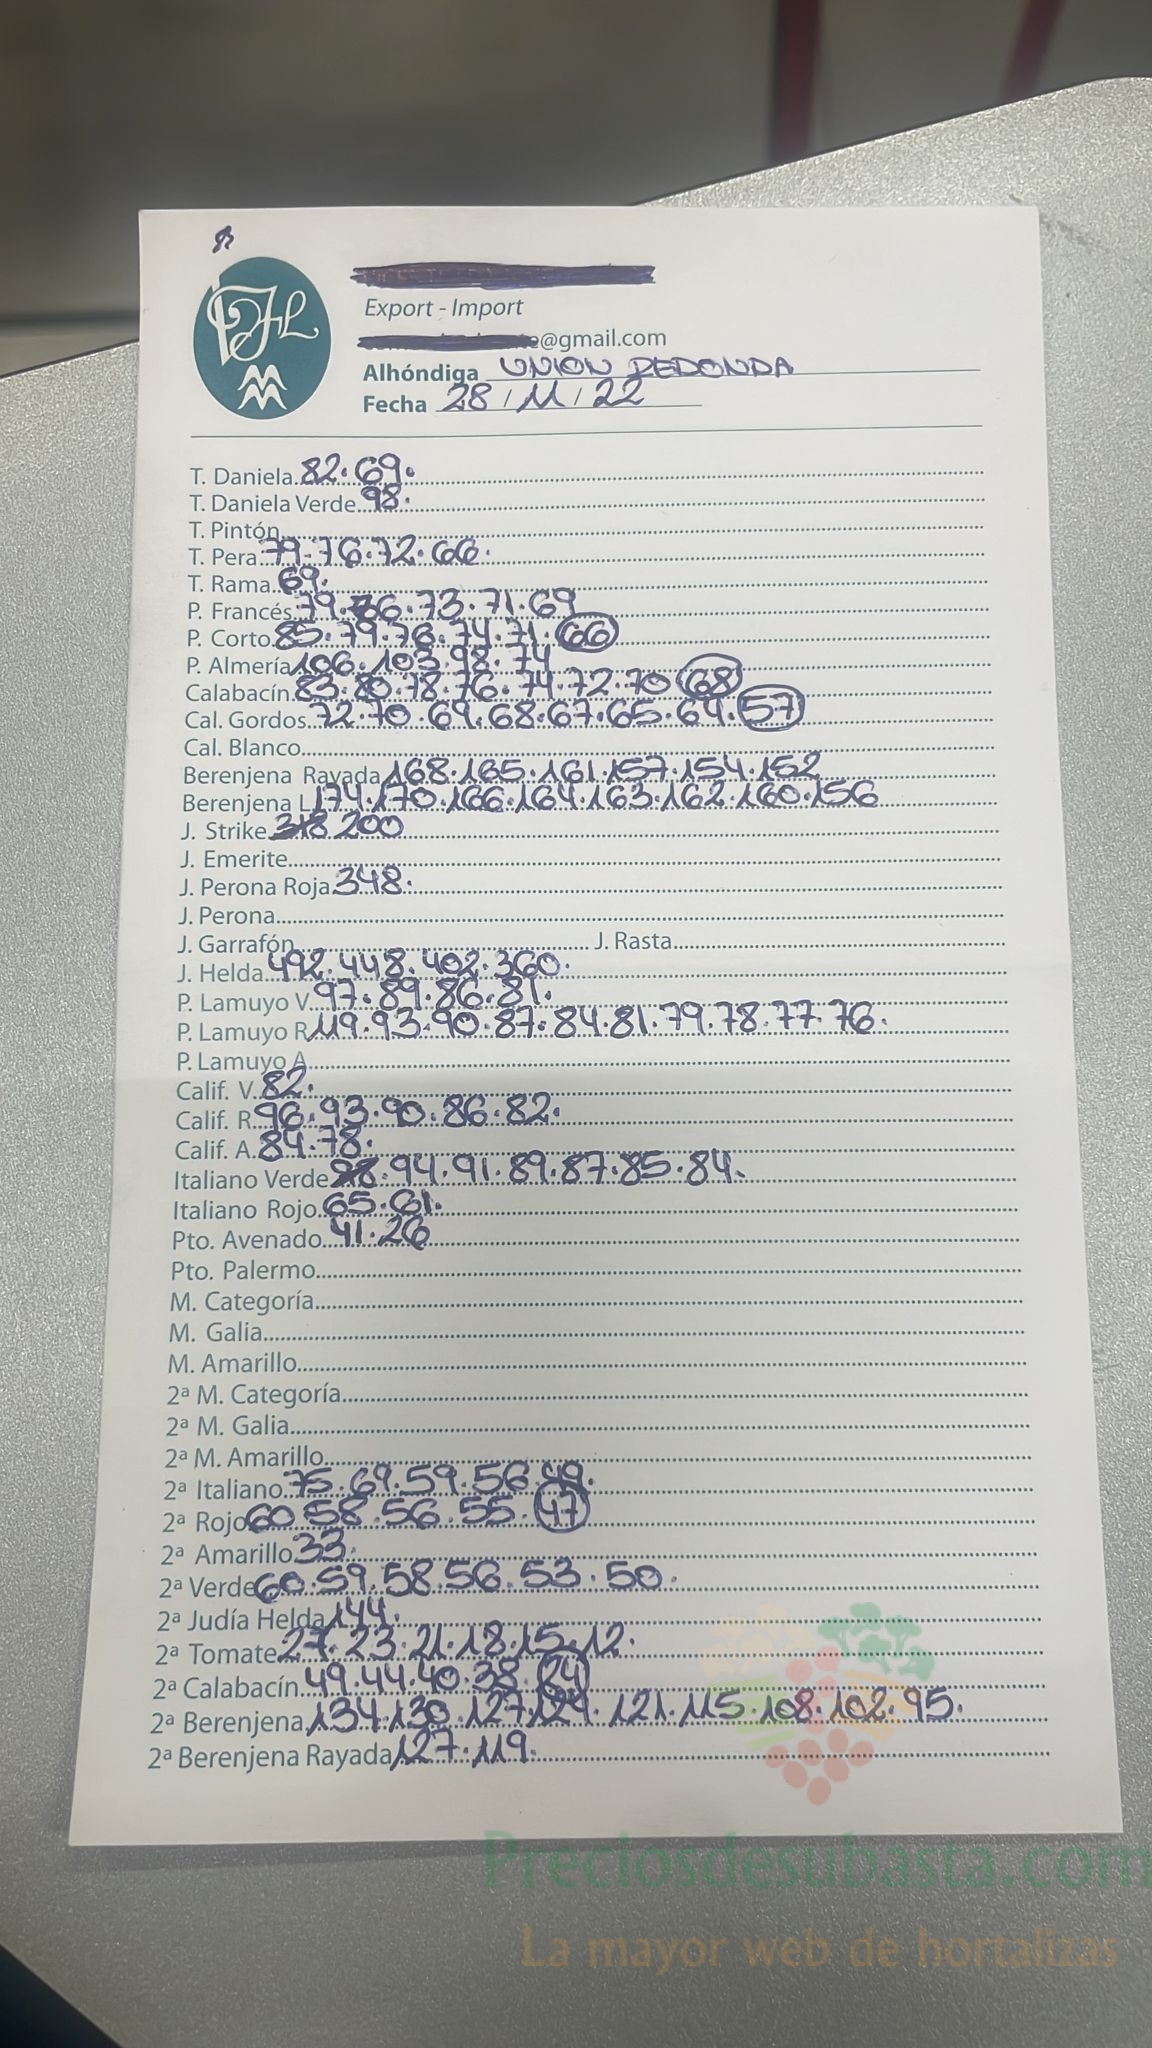 JHL
Export - Import
e@gmail.com
Alhóndiga UNION REDONDA
Fecha 28/11/22
T. Daniela 82.69.
T. Daniela Verde 98.
T. Pintón
T. Pera 79.76.72.66.
T. Rama 69.
P. Francés 79.76.73.71.69
P. Corto 85.79.76.74.71.66
P. Almería 106.103.98.74
Calabacín 83.80.78.76.74.72.70 68
Cal. Gordos 72.70.69.68.67.65.64.57
Cal. Blanco
Berenjena Rayada 168.165.161.157.154.152
Berenjena L 174.170.166.164.163.162.160.156
J. Strike 200
J. Emerite
J. Perona Roja 348.
J. Perona
J. Garrafón J. Rasta
J. Helda 492.448.402.360.
P. Lamuyo V. 97.89.86.81.
P. Lamuyo R. 119.93.90.87.84.81.79.78.77.76.
P. Lamuyo A
Calif. V. 82.
Calif. R. 96.93.90.86.82.
Calif. A. 84.78.
Italiano Verde 94.91.89.87.85.84.
Italiano Rojo 65.61.
Pto. Avenado 41.26
Pto. Palermo
M. Categoría
M. Galia
M. Amarillo
2ª M. Categoría
2ª M. Galia
2ª M. Amarillo
2ª Italiano 75.69.59.56.49.
2ª Rojo 60.58.56.55.47
2ª Amarillo 33.
2ª Verde 60.59.58.56.53.50.
2ª Judía Helda 144.
2ª Tomate 27.23.21.18.15.12.
2ª Calabacín 49.44.40.38.24
2ª Berenjena 134.130.127.124.121.115.108.102.95.
2ª Berenjena Rayada 127.119.
Preciosdesubasta.com
La mayor web de hortalizas